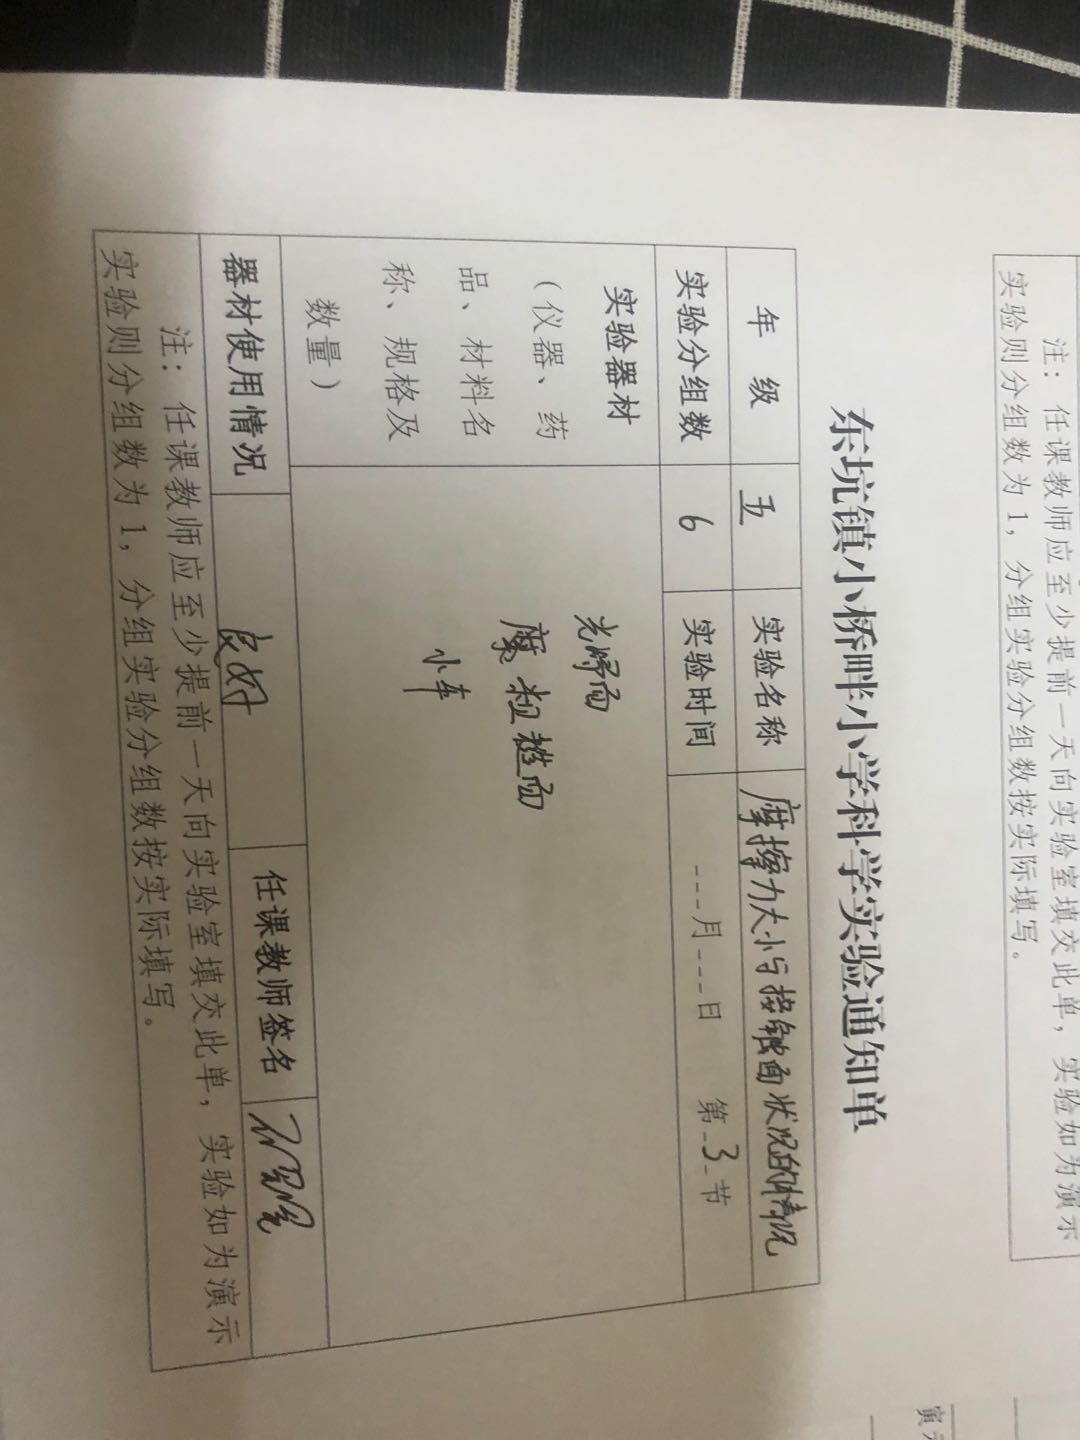 注：任课教师应至少提前一天向实验室填交此单，实验如为演示
实验则分组数为1，分组实验分组数按实际填写。
东坑镇小桥畔小学科学实验通知单
年 级 五 实验名称 摩擦力大小与接触面状况的情况
实验分组数 6 实验时间 ---月---日 第-3-节
实验器材
（仪器、药
品、材料名
称、规格及
数量）
光滑面
粗糙面
小车
器材使用情况 良好 任课教师签名
注：任课教师应至少提前一天向实验室填交此单，实验如为演示
实验则分组数为1，分组实验分组数按实际填写。